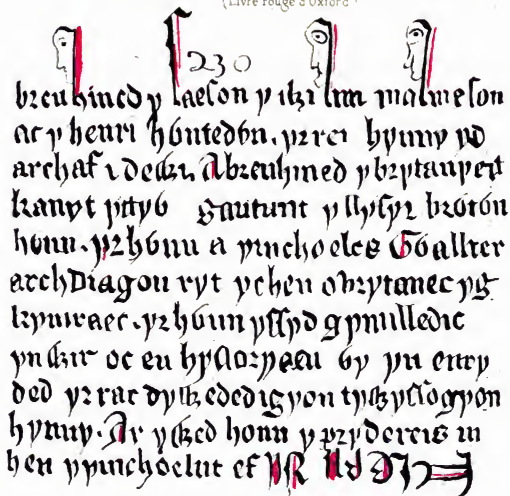 (Livre rouge d'Oxford
230
brenhined y saeson y malmeson
ac y henri yr rei hynny yd
archaf i dewi. A brenhined y brytanyeit
kanyt ydy6 gantunt y llyfyr
honn. yr h6nn a ymchoeles G6allter
archdiagon ryt ychen o brytanec yg
kymraec. yr h6nn yssyd gynnulledic
yn wir oc eu hystoryaeu 6y yn enry
ded yr rac dywededigyon tywyssogyon
hynny. Ar y wed honn y prydereis in
heu y ymchoelut ef